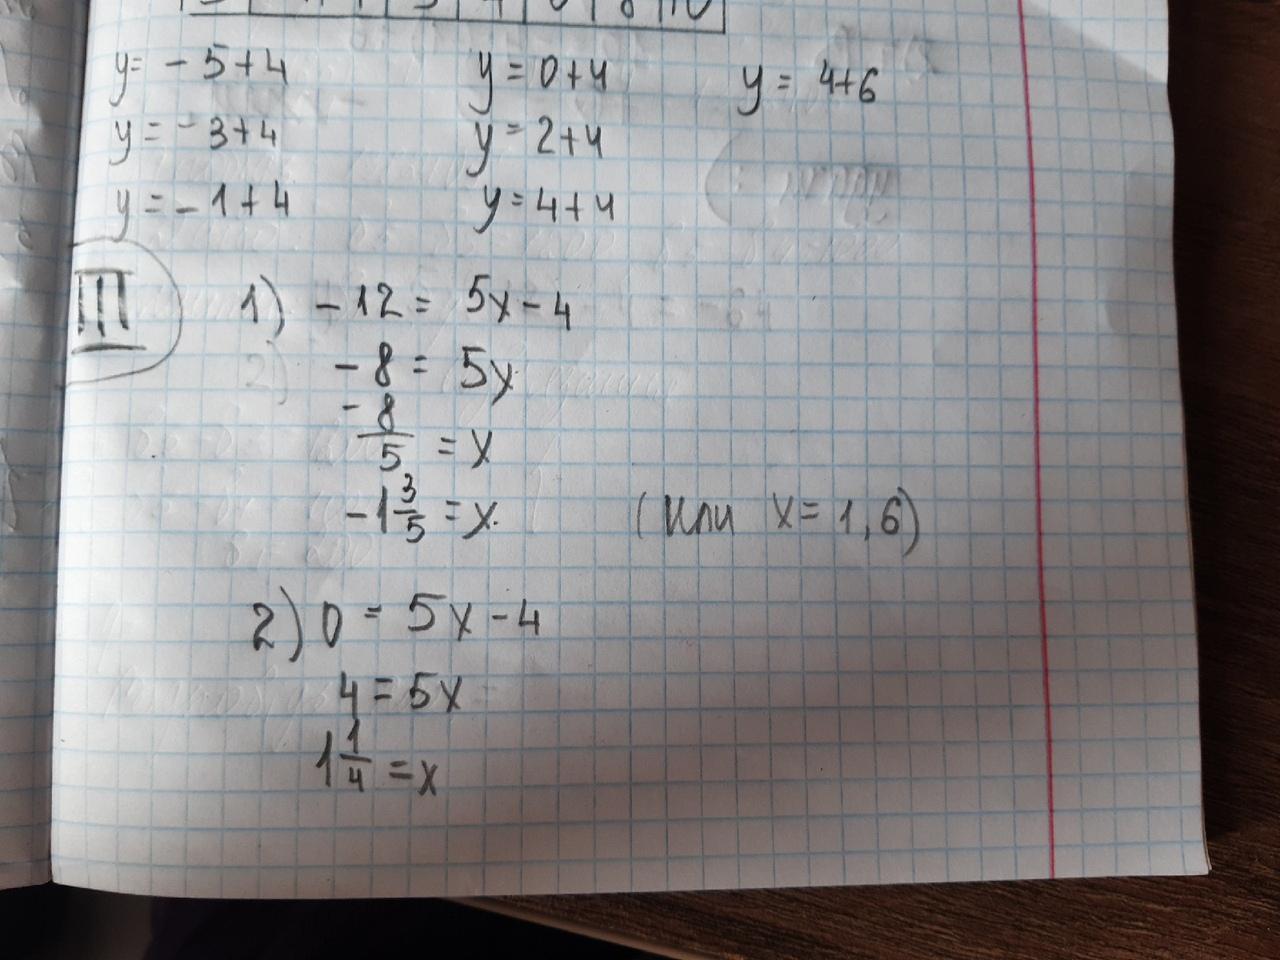 y= -5+4 y=0+4 y= 4+6
y=-3+4 y=2+4
y=-1+4 y=4+4
III 1) -12= 5x-4
-8= 5x
-8/5 =x
-1 3/5 =x. (или x=1,6)
2) 0= 5x-4
4=5x
1 1/4 =x